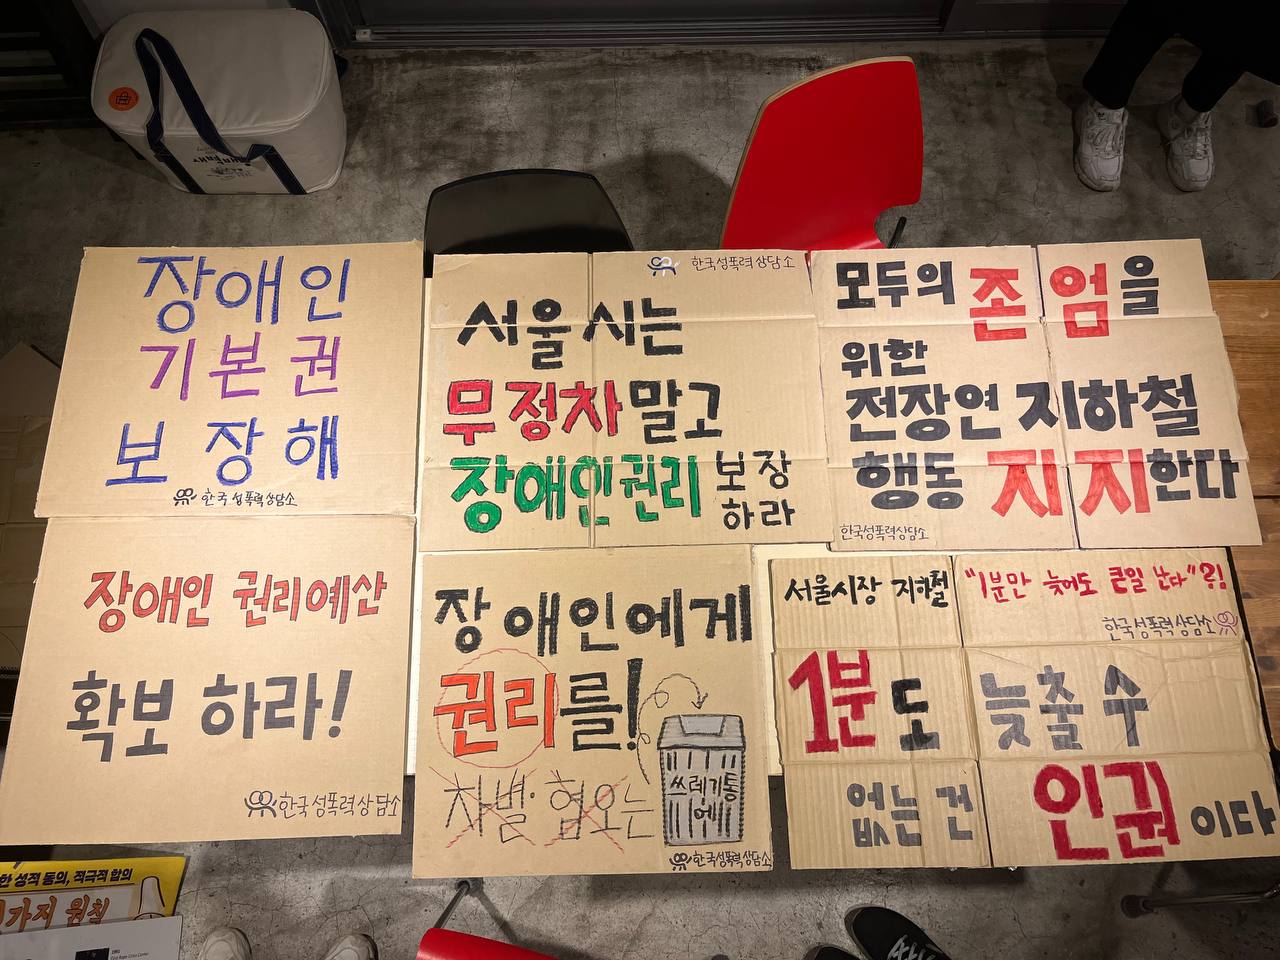 장애인
기본권
보장해
한국성폭력상담소
한국성폭력상담소
서울시는
무정차말고
장애인권리 보장
하라
모두의 존엄을
위한
전장연 지하철
행동 지지한다
한국성폭력상담소
장애인 권리예산
확보하라!
한국성폭력상담소
장애인에게
권리를!
차별·혐오는
쓰레기통
에!
한국성폭력상담소
서울시장 지하철 "1분만 늦어도 큰일 난다"?!
한국성폭력상담소
1분도 늦출 수
없는 건 인권이다
한 성적 동의, 적극적 합의
가지 원칙